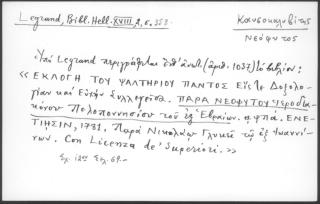 Legrand, Bibl. Hell. XVIII, 2, σ. 353.
Καυσοκαλυβίτης
Νεόφυτος
Ὑπὸ Legrand περιγράφεται ἐπ' ἀνωτ. (ἀριθ. 1037) τὸ βιβλίον:
«ΕΚΛΟΓΗ ΤΟΥ ΨΑΛΤΗΡΙΟΥ ΠΑΝΤΟΣ Εἰς Δοξολο-
γίαν καὶ Εὐχὴν Συλλεγεῖσα. ΠΑΡΑ ΝΕΟΦΥΤΟΥ Ἱεροδια-
κόνου Πελοποννησίου τοῦ ἐξ Ἑβραίων. αψπα. ΕΝΕ-
ΤΙΗΣΙΝ, 1781. Παρὰ Νικολάῳ Γλυκεῖ τῷ ἐξ Ἰωαννί-
νων. Con Licenza de' Superiori.»
Σχ. 12ον Σελ. 69.—